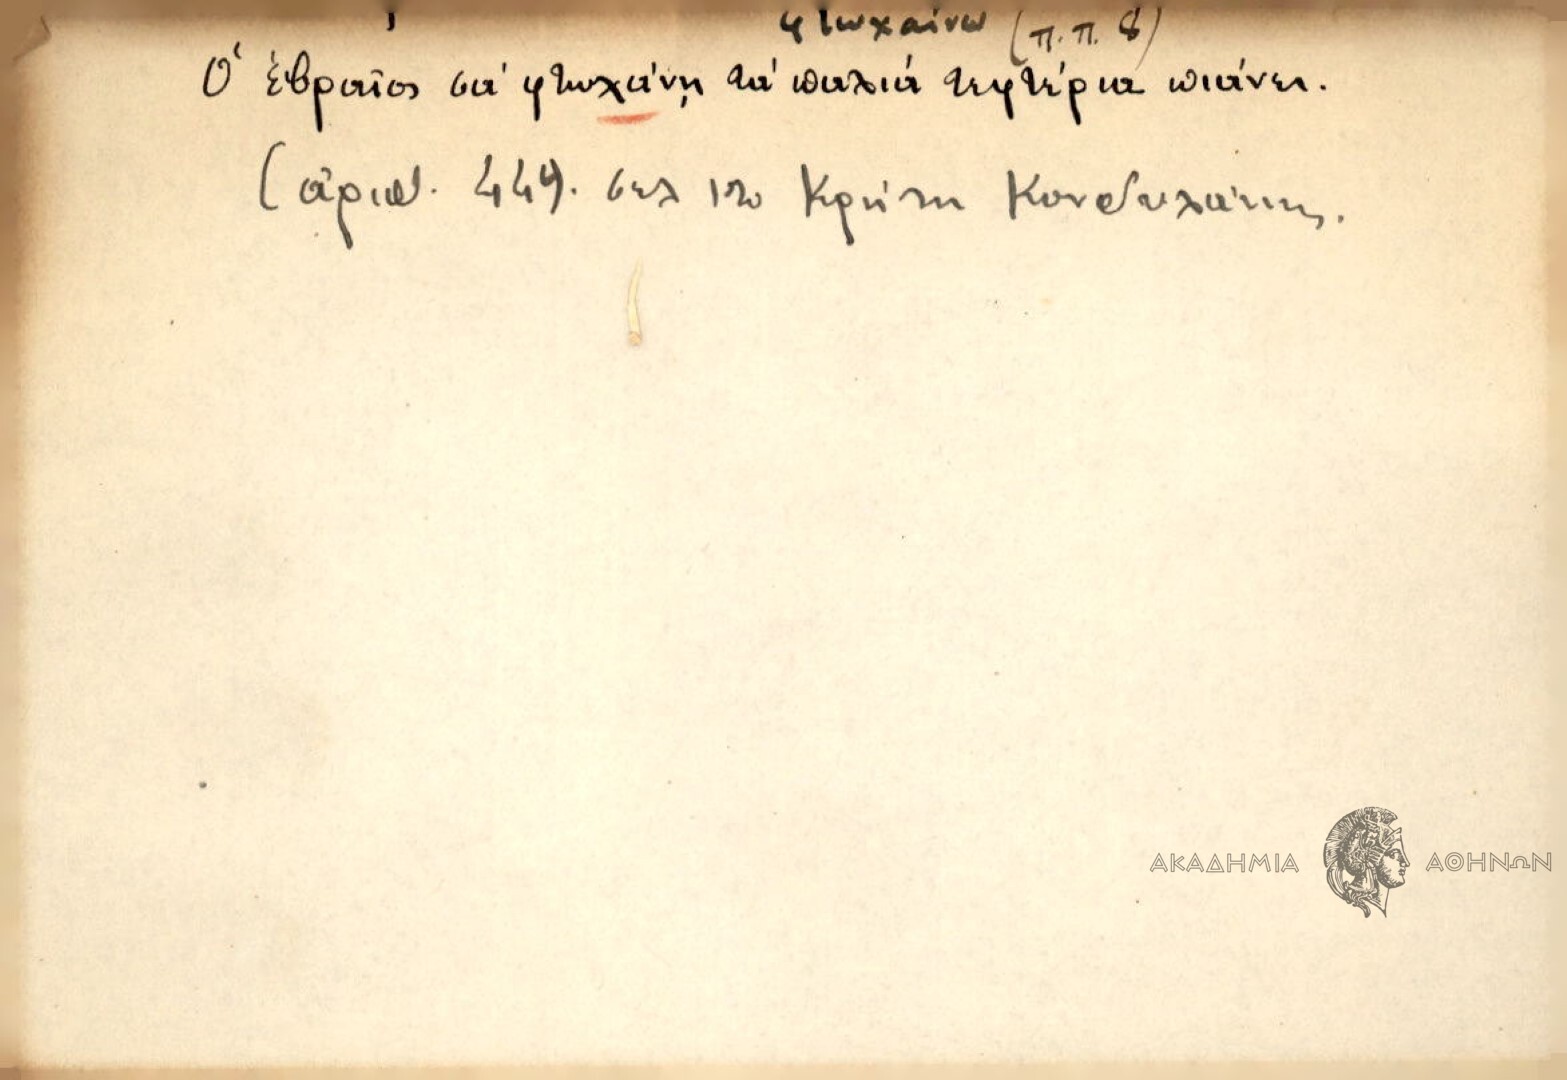 φτωχαίνω (π.π. 8)
Ὁ ἑβραῖος σὰ φτωχάνῃ τὰ παλιὰ τεφτέρια πιάνει.
(ἀριθ. 449). σελ Κρήτη Κονδυλάκης.
ΑΚΑΔΗΜΙΑ ΑΘΗΝΩΝ